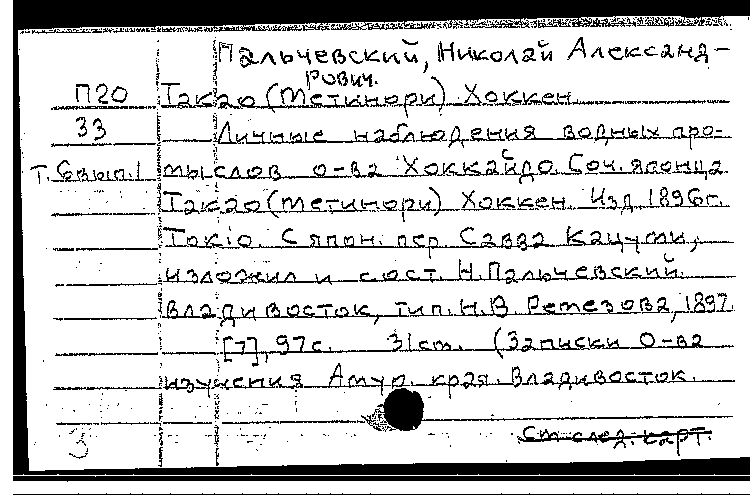 Пальчевский, Николай Александ-
рович.
П20 Такао (Метинори) Хоккен.
33 Личные наблюдения водных про-
т. 6 вып. 1 мыслов о-ва Хоккайдо. Соч. японца
Такао (Метинори) Хоккен. Изд. 1896г.
Токiо. С япон. пер. Савва Кацуми,
изложил и сост. Н. Пальчевский.
Владивосток, тип. Н.В. Ремезова, 1897.
[7], 97с. 31см. (Записки О-ва
изучения Амур. края. Владивосток.
См след. карт.
3